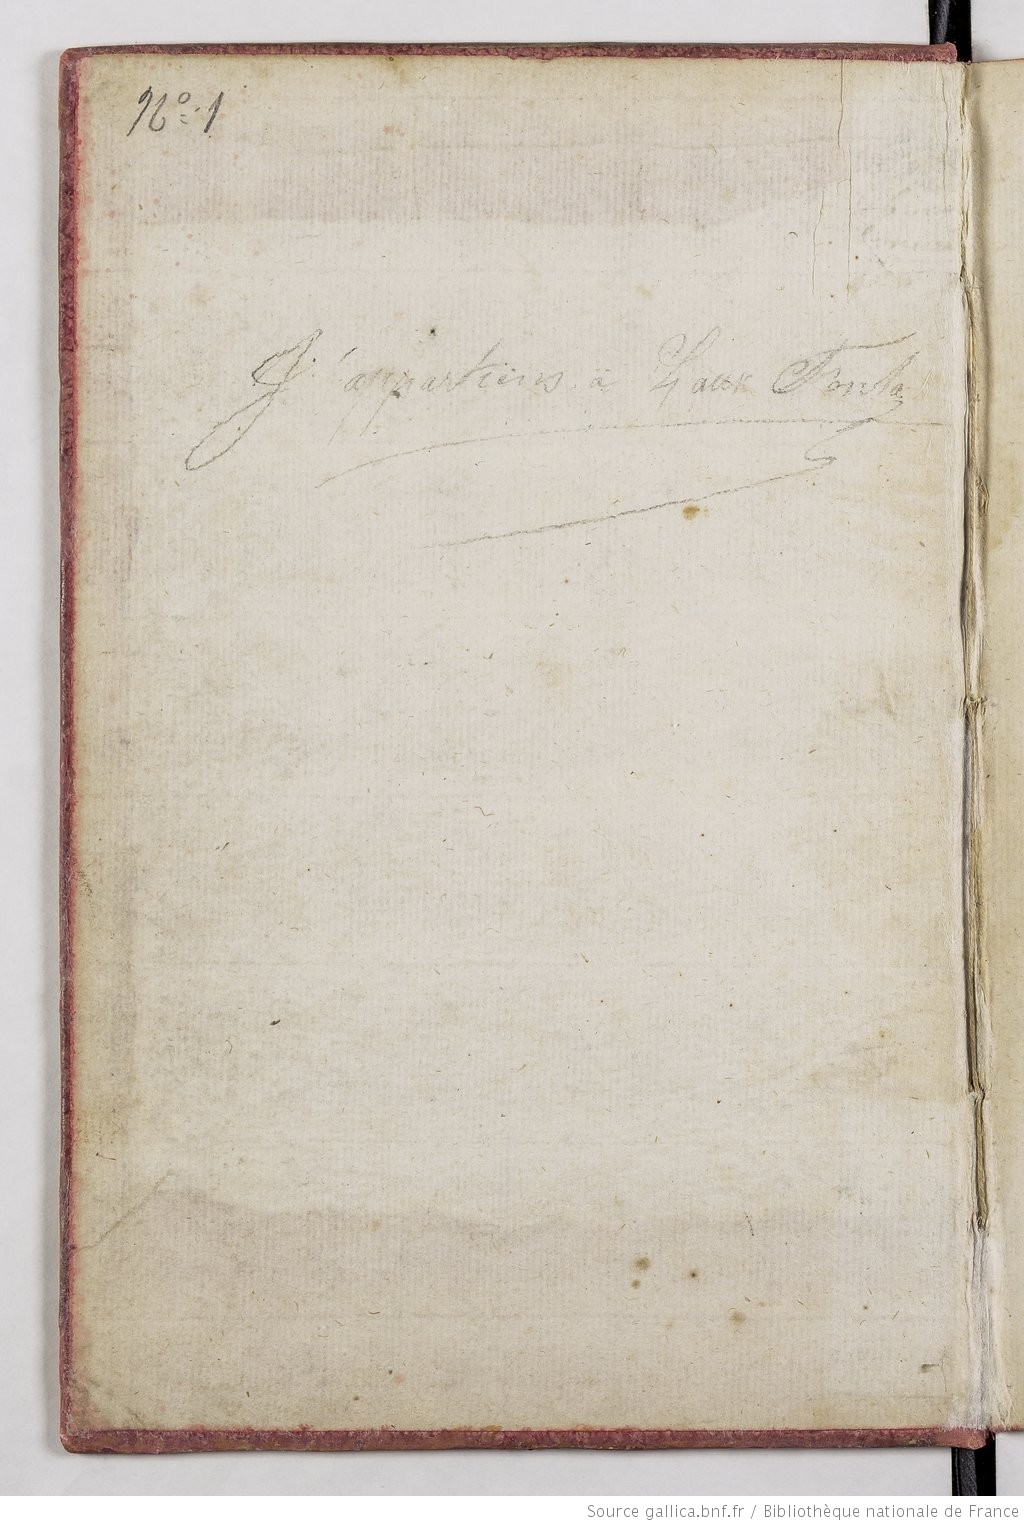 Nº. 1
J'appartiens à
Source gallica.bnf.fr / Bibliothèque nationale de France